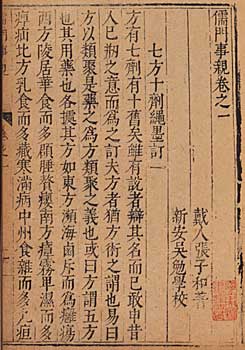 儒門事親卷之一
戴人張子和著
新安吳勉學校
七方十劑繩墨訂一
方有七劑有十舊矣雖有說者辯其名而已敢申昔
人已刱之意而爲之訂夫方者猶方術之謂也易曰
方以類聚是藥之爲方類聚之義也或曰方謂五方
也其用藥也各據其方如東方瀕海鹵斥而爲癰瘍
西方陵居華食而多頞腄贅癭南方瘴霧卑濕而多
痹疝北方乳食而多藏寒滿病中州食雜而多九疸